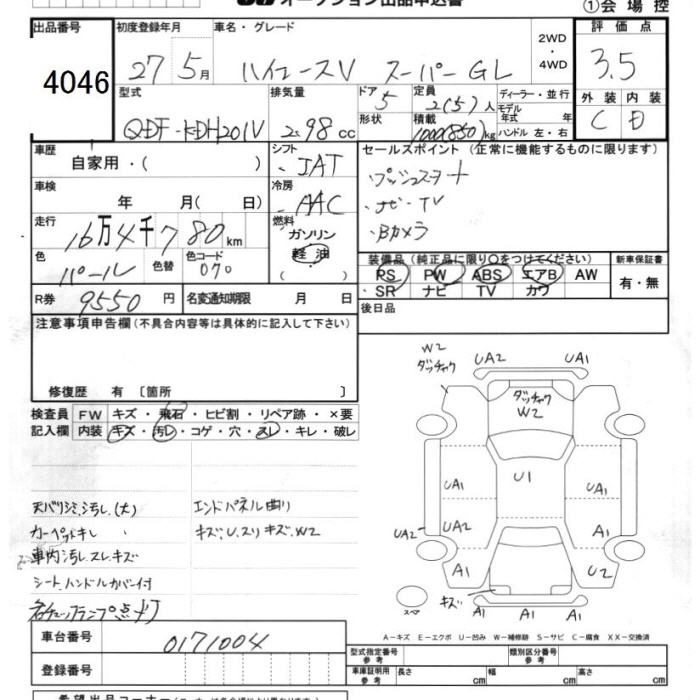 オークション出品申込書
①会場控
出品番号 初度登録年月 車名・グレード 2WD・4WD 評価点
4046 27 5月 ハイエースV スーパーGL 3.5
型式 排気量 ドア 定員 ディーラー・並行 外装 内装
5 2(5)人 モデル年式 年式
QDF-KDH201V 2.98cc 形状 積載 1000(850)kg ハンドル 左・右 C D
車歴 自家用・( ) シフト ・IAT
セールスポイント (正常に機能するものに限ります)
・プッシュスタート
車検 年 月( 日) 冷房 ・AAC
・ナビ・TV
走行 16万4千780km 燃料 ガソリン 軽油 ( )
・Bカメラ
色 パール 色替 色コード 070
装備品(純正品に限り○をつけてください) 新車保証書
RS PW ABS エアB AW 有・無
SR ナビ TV カワ
R券 9550円 名変通知期限 月 日
後日品
注意事項申告欄(不具合内容等は具体的に記入して下さい)
修復歴 有 〔箇所 〕
検査員記入欄 FW キズ・飛石・ヒビ割・リペア跡・×要
内装 キズ・汚レ・コゲ・穴・スレ・キレ・破レ
天バリシミ、汚レ(大) エンドパネル曲り
カーペットキレ
車内汚レ、スレ、キズ
シート、ハンドルカバー付
W2
ダッチャク
UA2 UA1
ダッチャク
W2
U1
UA1 UA1
UA2 UA2 A1
A1 U2
キズ
スペア A1 A1 A1
A-キズ E-エクボ U-凹み W-補修跡 S-サビ C-腐食 XX-交換済
車台番号 0171004
型式指定番号 参考 類別区分番号 参考
登録番号
車庫証明用 参考 長さ cm 幅 cm 高さ cm